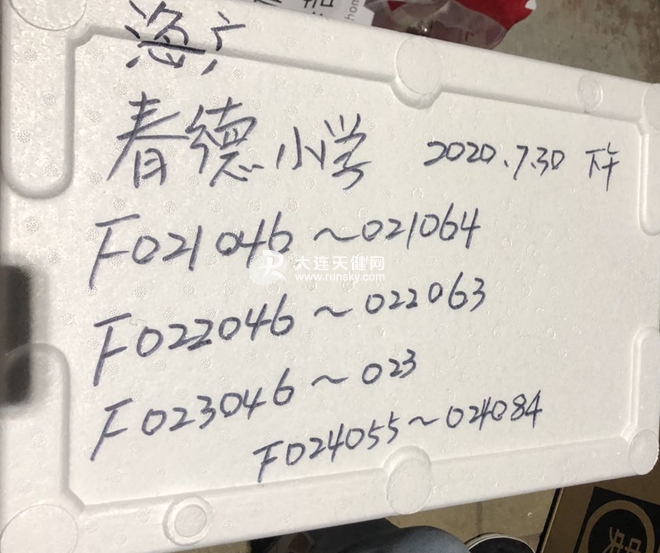 春德小学 2020.7.30 下午
F021046～021064
大连天健网
www.runsky.com
F022046～022063
F023046～023
F024055～024084